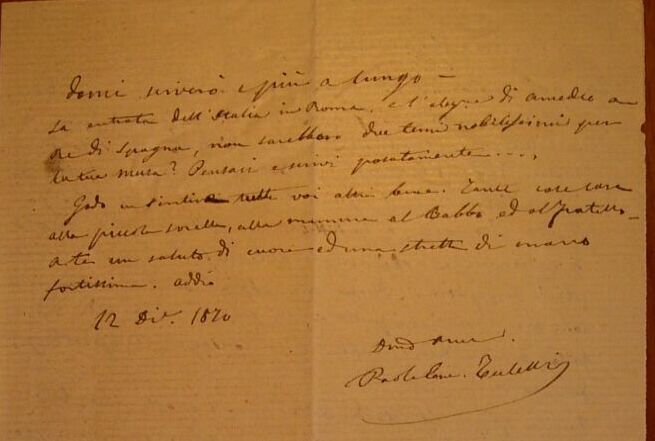 scriverò e più a lungo –
La entrata dell'Italia in Roma, e l'elezne di Amedeo a
Re di Spagna, non sarebbero due temi nobilissimi per
la tua musa? Pensaci e scrivi posatamente....
Godo in sentire tutti voi altri bene. Tante cose care
alla piccola sorella, alla mamma al Babbo, ed al fratello –
a te un saluto di cuore ed una stretta di mano
fortissima. addio
12 Dic. 1870